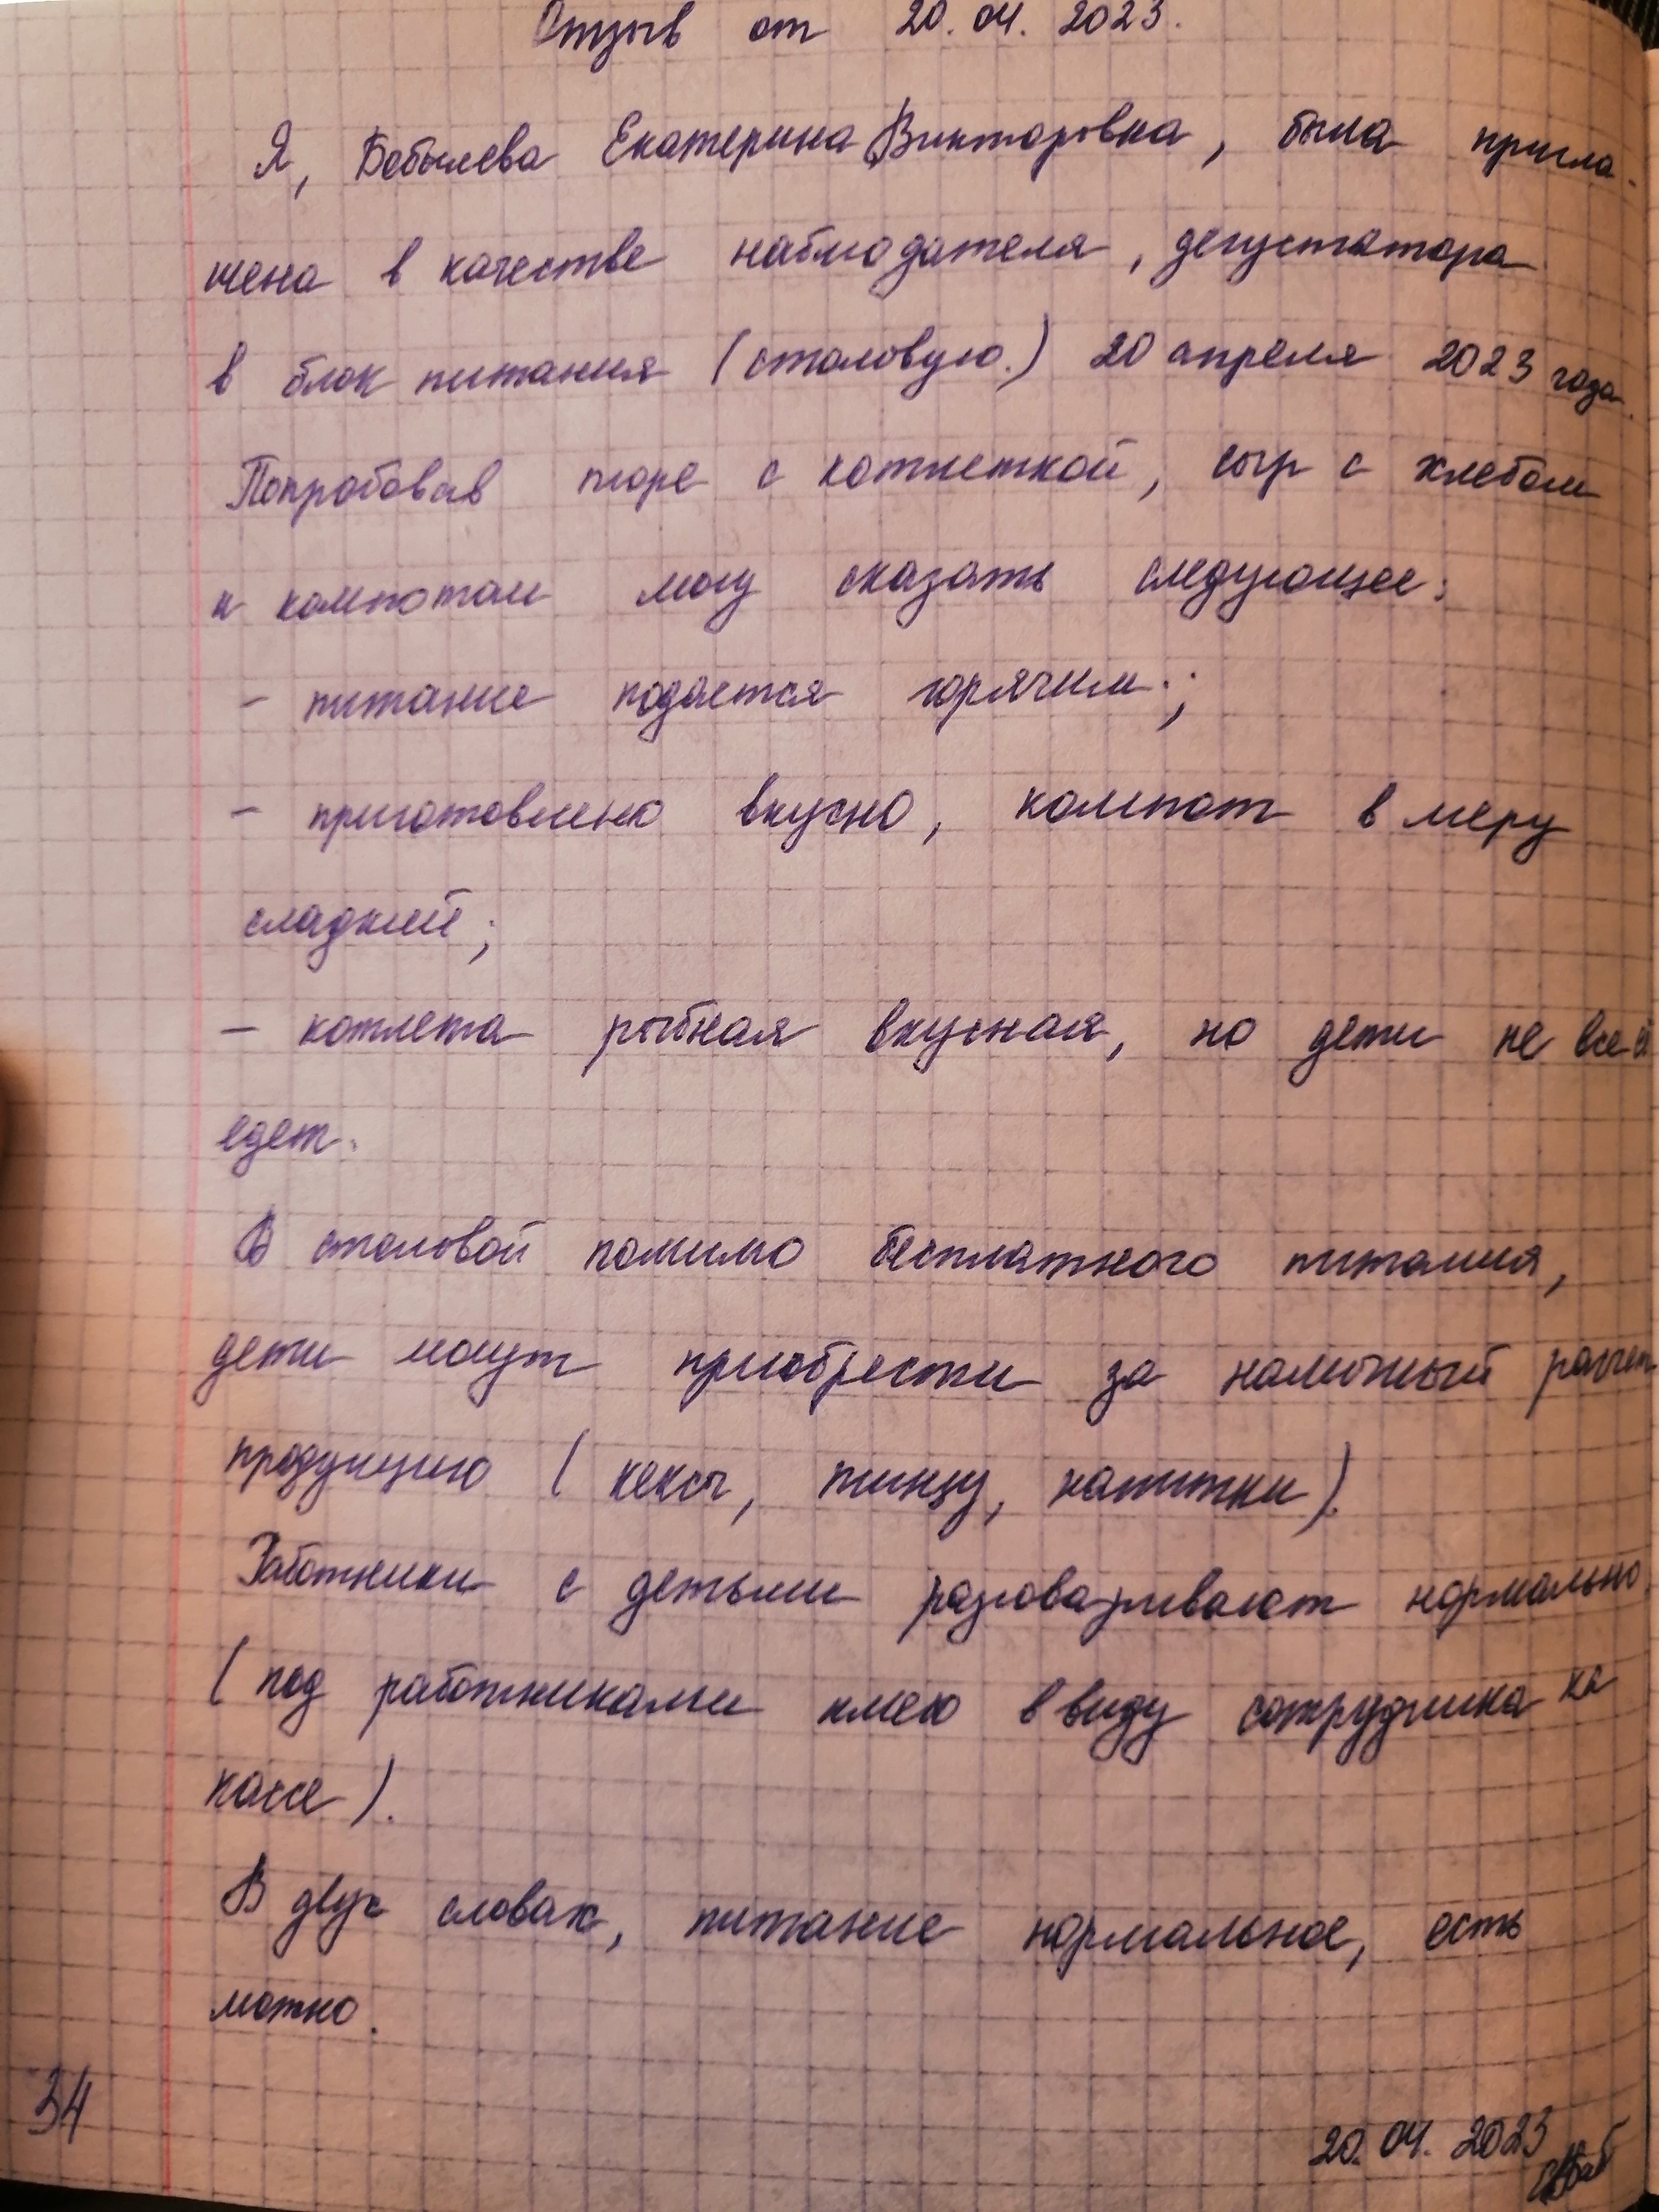 Отзыв от 20.04.2023.
Я, Бобылева Екатерина Викторовна, была пригла-
шена в качестве наблюдателя, дегустатора
в блок питания (столовую.) 20 апреля 2023 года.
Попробовав пюре с котлеткой, сыр с хлебом
и компотом могу сказать следующее:
- питание подается горячим.;
- приготовлено вкусно, компот в меру
сладкий;
- котлета рыбная вкусная, но дети не все её
едет.
В столовой помимо бесплатного питания,
дети могут приобрести за наличный расчет
продукцию (кексы, пиццу, напитки).
Работники с детьми разговаривают нормально
(под работниками имею ввиду сотрудника на
кассе).
В двух словах, питание нормальное, есть
можно.
34
20.04.2023